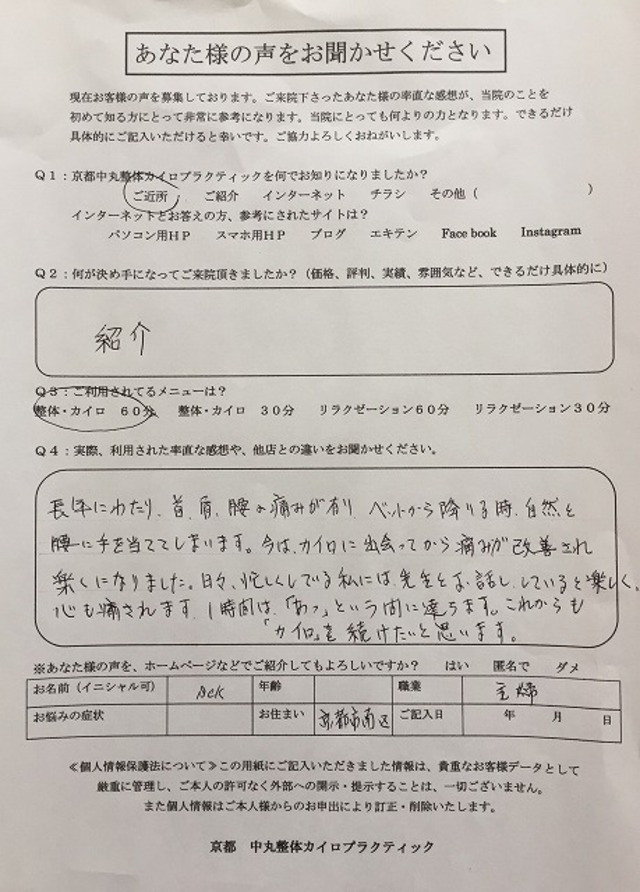 あなた様の声をお聞かせください
現在お客様の声を募集しております。ご来院下さったあなた様の率直な感想が、当院のことを
初めて知る方にとって非常に参考になります。当院にとっても何よりの力となります。できるだけ
具体的にご記入いただけると幸いです。ご協力よろしくおねがいします。
Q1：京都中丸整体カイロプラクティックを何でお知りになりましたか？
ご近所 ご紹介 インターネット チラシ その他（ ）
インターネットとお答えの方、参考にされたサイトは？
パソコン用HP スマホ用HP ブログ エキテン Face book Instagram
Q2：何が決め手になってご来院頂きましたか？（価格、評判、実績、雰囲気など、できるだけ具体的に）
紹介
Q3：ご利用されてるメニューは？
整体・カイロ 60分 整体・カイロ 30分 リラクゼーション60分 リラクゼーション30分
Q4：実際、利用された率直な感想や、他店との違いをお聞かせください。
長年にわたり、首、肩、腰の痛みが有り ベットから降りる時、自然と
腰に手を当ててしまいます。今は、カイロに出会ってから痛みが改善され
楽くになりました。日々、忙しくしている私には、先生とお話し、していると楽しく、
心も癒されます。1時間は、「あっ」という間に達ちます。これからも
「カイロ」を続けたいと思います。
※あなた様の声を、ホームページなどでご紹介してもよろしいですか？ はい 匿名で ダメ
お名前（イニシャル可） 年齢 職業 主婦
お悩みの症状 お住まい 京都市南区 ご記入日 年 月 日
≪個人情報保護法について≫この用紙にご記入いただきました情報は、貴重なお客様データとして
厳重に管理し、ご本人の許可なく外部への開示・提示することは、一切ございません。
また個人情報はご本人様からのお申出により訂正・削除いたします。
京都 中丸整体カイロプラクティック